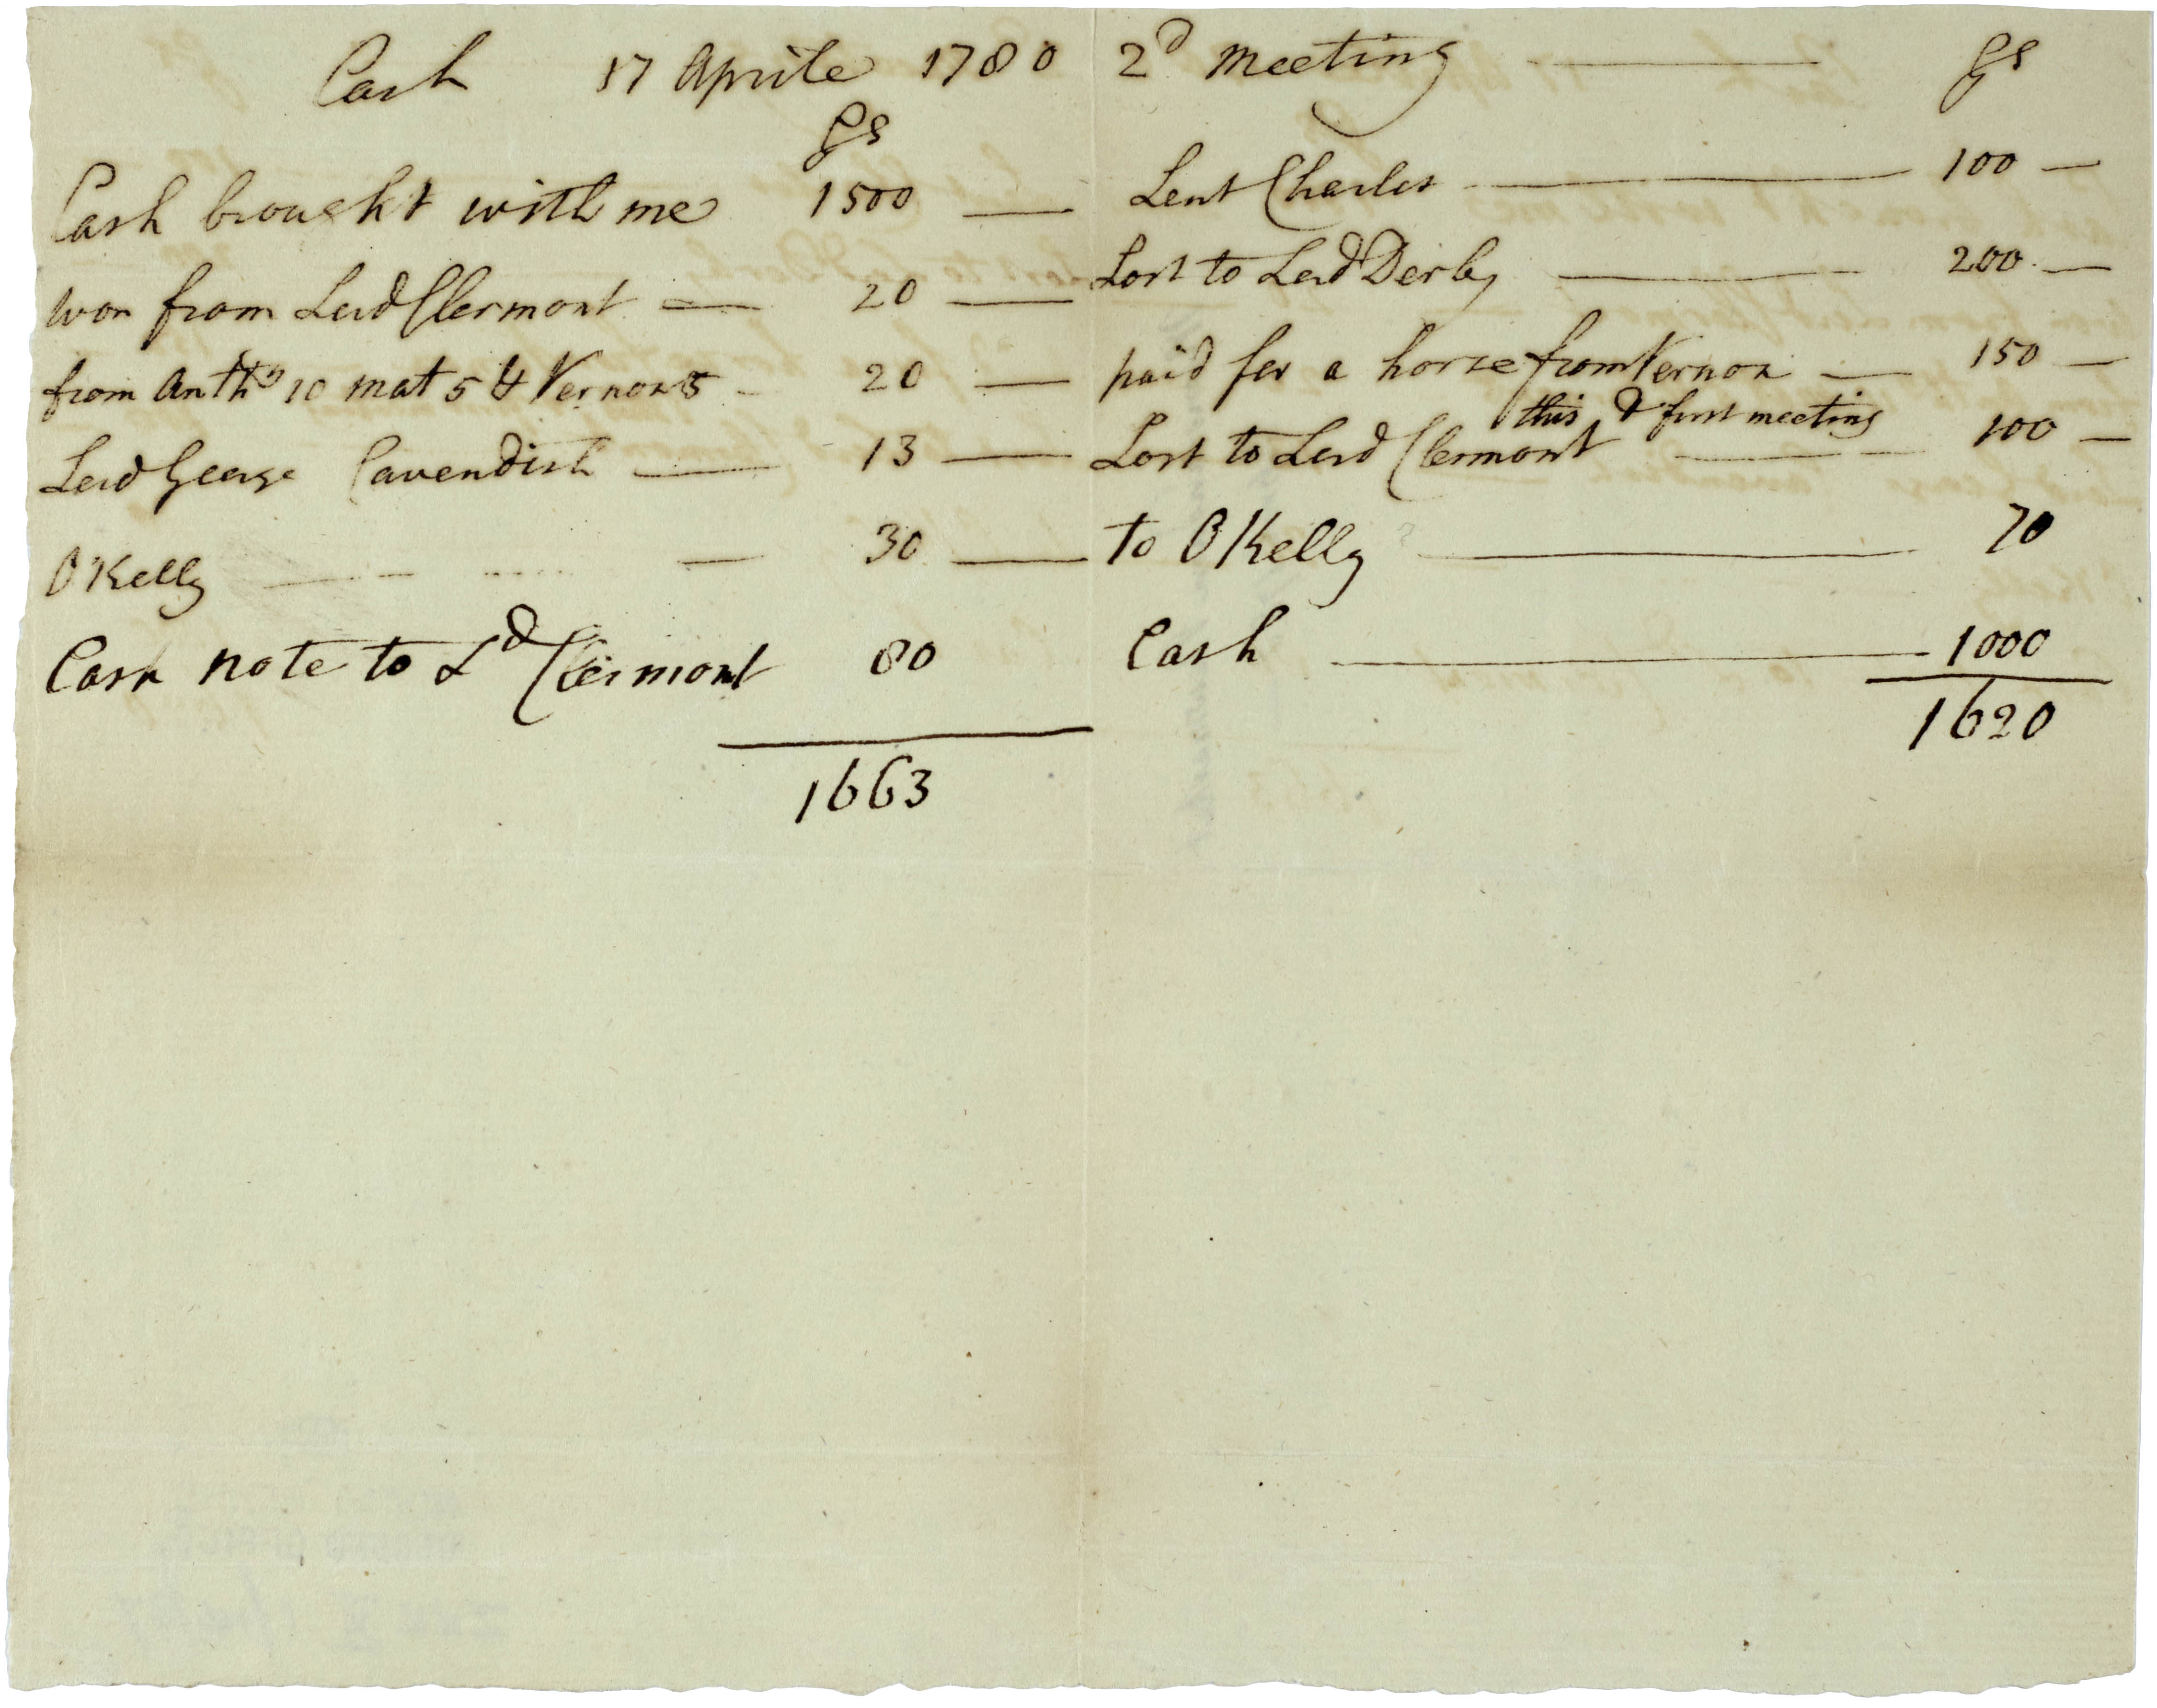 Cash 17 Aprile 1780 2d Meeting
gs
Cash brought with me 1500
won from Lord Clermont 20
from Anthy 10 Mat 5 & Vernon 5 20
Lord George Cavendish 13
O Kelly 30
Cash note to Ld Clermont 80
1663
gs
Lent Charles 100
Lost to Lord Derby 200
paid for a horse from Vernon 150
this & first meeting
Lost to Lord Clermont 100
To O Kelly 70
Cash 1000
1620